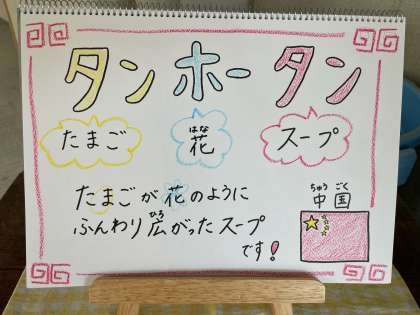 タンホータン
たまご
はな
花
スープ
たまごが花のように
ふんわり広がったスープ
ひろ
です!
ちゅうごく
中国